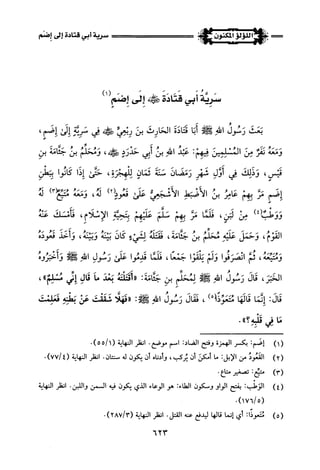 اللؤلؤ المكنون
سرية أبي قتادة إلى إضم
سَرِيَّةُ أَبِي قَتَادَةَ ﷺ إِلَى إِضَمٍ (١)
بَعَثَ رَسُولُ اللهِ ﷺ أَبَا قَتَادَةَ الحَارِثَ بنَ رِبْعِيٍّ ﷺ فِي سَرِيَّةٍ إِلَى إِضَمٍ،
وَمَعَهُ نَفَرٌ مِنَ المُسْلِمِينَ فِيهِمْ: عَبْدُ اللهِ بنُ أَبِي حَدْرَدٍ ﷺ، وَمُحَلِّمُ بنُ جَثَّامَةَ بنِ
قَيْسٍ، وَذَلِكَ فِي أَوَّلِ شَهْرِ رَمَضَانَ سَنَةَ ثَمَانٍ لِلْهِجْرَةِ، حَتَّى إِذَا كَانُوا بِبَطْنِ
إِضَمٍ مَرَّ بِهِمْ عَامِرُ بنُ الأَضْبَطِ الأَشْجَعِيُّ عَلَى قَعُودٍ (٢) لَهُ، وَمَعَهُ مُتَيِّعٌ (٣) لَهُ
وَوَطْبٌ (٤) مِنْ لَبَنٍ، فَلَمَّا مَرَّ بِهِمْ سَلَّمَ عَلَيْهِمْ بِتَحِيَّةِ الإِسْلَامِ، فَأَمْسَكَ عَنْهُ
القَوْمُ، وَحَمَلَ عَلَيْهِ مُحَلِّمُ بنُ جَثَّامَةَ، فَقَتَلَهُ لِشَيْءٍ كَانَ بَيْنَهُ وَبَيْنَهُ، وَأَخَذَ قَعُودَهُ
وَمُتَيِّعَهُ، ثُمَّ انْصَرَفُوا وَلَمْ يَلْقَوْا جَمْعًا، فَلَمَّا قَدِمُوا عَلَى رَسُولِ اللهِ ﷺ وَأَخْبَرُوهُ
الخَبَرَ، قَالَ رَسُولُ اللهِ ﷺ لِمُحَلِّمِ بنِ جَثَّامَةَ: «أَقَتَلْتَهُ بَعْدَ مَا قَالَ إِنِّي مُسْلِمٌ»،
قَالَ: إِنَّمَا قَالَهَا مُتَعَوِّذًا (٥)، فَقَالَ رَسُولُ اللهِ ﷺ: «فَهَلَّا شَقَقْتَ عَنْ بَطْنِهِ فَعَلِمْتَ
مَا فِي قَلْبِهِ؟».
(١) إضم: بكسر الهمزة وفتح الضاد: اسم موضع. انظر النهاية (٥٥/١).
(٢) القَعُودُ من الإبل: ما أمكنَ أن يُركب، وأدناه أن يكون له سنتان. انظر النهاية (٧٧/٤).
(٣) متيع: تصغير متاع.
(٤) الوَطْبُ: بفتح الواو وسكون الطاء: هو الوعاء الذي يكون فيه السمن واللبن. انظر النهاية
(١٧٦/٥)
(٥) مُتعوذًا: أي إنما قالها ليدفع عنه القتل. انظر النهاية (٢٨٧/٣).
٦٢٣